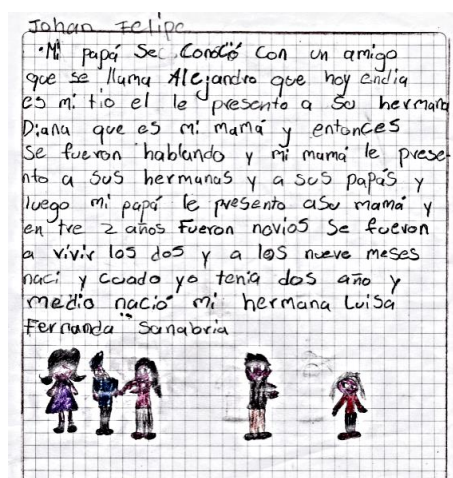 Johan Felipe
·Mi papá se conoció con un amigo
que se llama Alejandro que hoy endia
es mi tio el le presento a su herman
Diana que es mi mamá y entonces
se fueron hablando y mi mamá le prese-
nto a sus hermanas y a sus papás y
luego mi papá le presento asu mamá y
en tre 2 años Fueron novios se fueron
a vivir los dos y a los nueve meses
naci y cuado yo tenia dos año y
medio nació mi hermana Luisa
Fernanda Sanabria